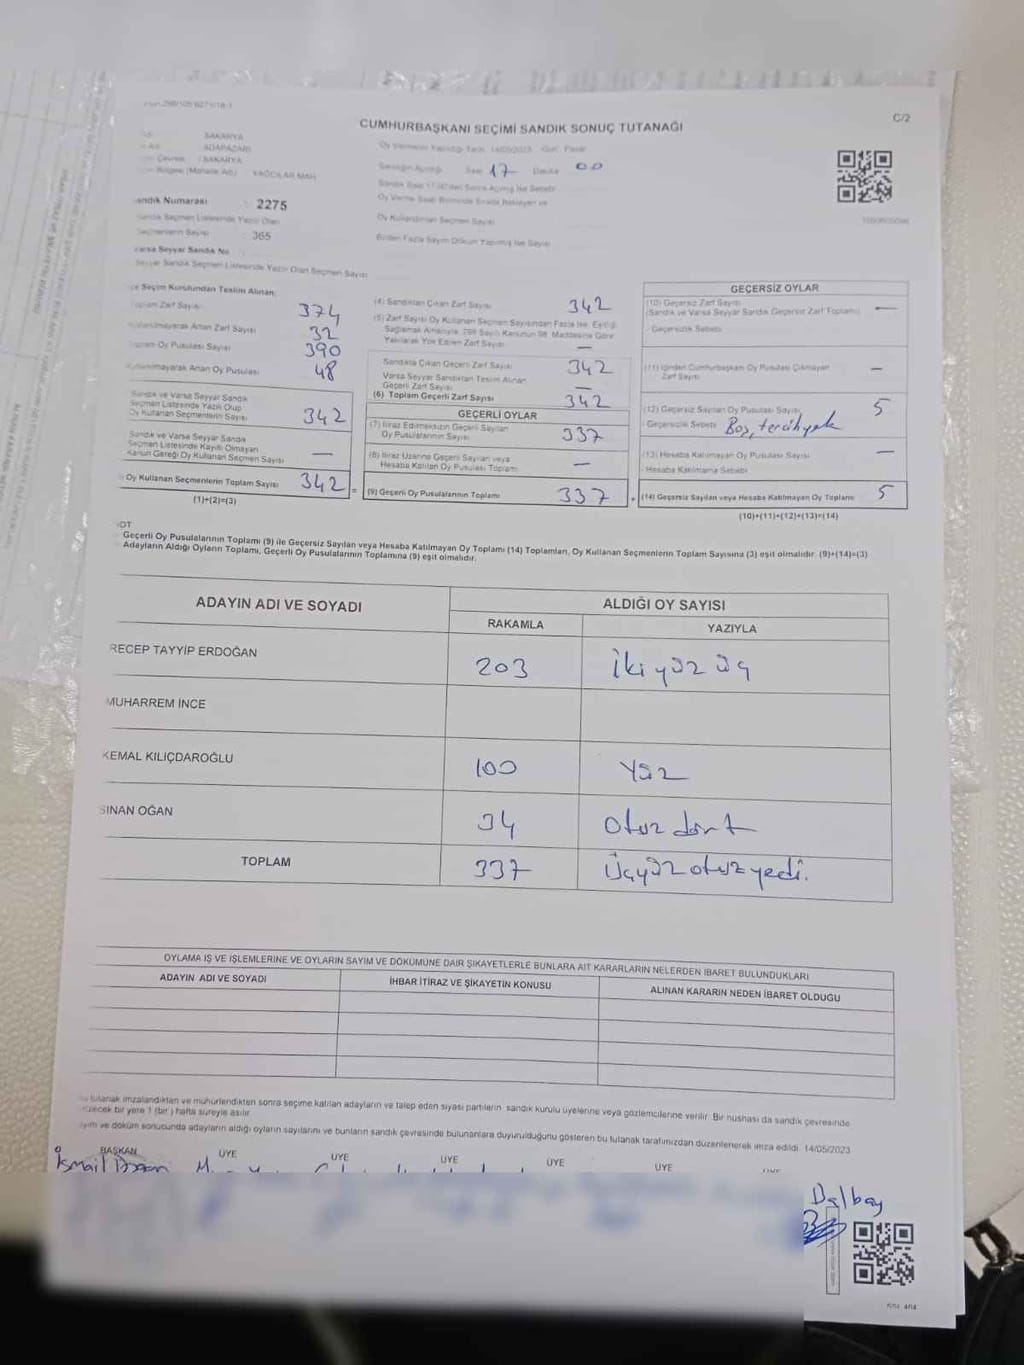 CUMHURBAŞKANI SEÇİMİ SANDIK SONUÇ TUTANAĞI
C/2
SAKARYA
ADAPAZARI
Çevresi : SAKARYA
Bölgesi (Mahalle Adı) YAĞCILAR MAH
Oy Vermenin Yapıldığı Tarih 14/05/2023 Gün: Pazar
Sandığın Açıldığı Saat 17 Dakika 00
Oy Kullandırılan Seçmen Sayısı
Birden Fazla Sayım Döküm Yapılmış İse Sayısı
andık Numarası : 2275
andık Seçmen Listesinde Yazılı Olan
Seçmenlerin Sayısı : 365
Varsa Seyyar Sandık No
Seyyar Sandık Seçmen Listesinde Yazılı Olan Seçmen Sayısı
çe Seçim Kurulundan Teslim Alınan;
Toplam Zarf Sayısı 374
Kullanılmayarak Artan Zarf Sayısı 32
Toplam Oy Pusulası Sayısı 390
Kullanılmayarak Artan Oy Pusulası 48
Sandık ve Varsa Seyyar Sandık
Seçmen Listesinde Yazılı Olup
Oy Kullanan Seçmenlerin Sayısı 342
Sandık ve Varsa Seyyar Sandık
Seçmen Listesinde Kayıtlı Olmayan
Kanun Gereği Oy Kullanan Seçmen Sayısı —
Oy Kullanan Seçmenlerin Toplam Sayısı 342
(1)+(2)=(3)
(4) Sandıktan Çıkan Zarf Sayısı 342
(5) Zarf Sayısı Oy Kullanan Seçmen Sayısından Fazla İse, Eşitliği
Sağlamak Amacıyla, 298 Sayılı Kanunun 98. Maddesine Göre
Yakılarak Yok Edilen Zarf Sayısı —
Sandıkta Çıkan Geçerli Zarf Sayısı 342
Varsa Seyyar Sandıktan Teslim Alınan
Geçerli Zarf Sayısı —
(6) Toplam Geçerli Zarf Sayısı 342
GEÇERLİ OYLAR
(7) İtiraz Edilmeksizin Geçerli Sayılan
Oy Pusulalarının Sayısı 337
(8) İtiraz Üzerine Geçerli Sayılan veya
Hesaba Katılan Oy Pusulası Toplamı —
= (9) Geçerli Oy Pusulalarının Toplamı 337 +
GEÇERSİZ OYLAR
(10) Geçersiz Zarf Sayısı
(Sandık ve Varsa Seyyar Sandık Geçersiz Zarf Toplamı) —
- Geçersizlik Sebebi
(11) İçinden Cumhurbaşkanı Oy Pusulası Çıkmayan
Zarf Sayısı —
(12) Geçersiz Sayılan Oy Pusulası Sayısı 5
- Geçersizlik Sebebi Boş, tercih yok
(13) Hesaba Katılmayan Oy Pusulası Sayısı —
- Hesaba Katılmama Sebebi
(14) Geçersiz Sayılan veya Hesaba Katılmayan Oy Toplamı 5
(10)+(11)+(12)+(13)=(14)
OT
Geçerli Oy Pusulalarının Toplamı (9) ile Geçersiz Sayılan veya Hesaba Katılmayan Oy Toplamı (14) Toplamları, Oy Kullanan Seçmenlerin Toplam Sayısına (3) eşit olmalıdır. (9)+(14)=(3)
Adayların Aldığı Oyların Toplamı, Geçerli Oy Pusulalarının Toplamına (9) eşit olmalıdır.
ADAYIN ADI VE SOYADI
ALDIĞI OY SAYISI
RAKAMLA YAZIYLA
RECEP TAYYİP ERDOĞAN 203 İki yüz üç
MUHARREM İNCE
KEMAL KILIÇDAROĞLU 100 Yüz
SİNAN OĞAN 34 Otuz dört
TOPLAM 337 Üçyüz otuz yedi.
OYLAMA İŞ VE İŞLEMLERİNE VE OYLARIN SAYIM VE DÖKÜMÜNE DAİR ŞİKAYETLERLE BUNLARA AİT KARARLARIN NELERDEN İBARET BULUNDUKLARI
ADAYIN ADI VE SOYADI İHBAR İTİRAZ VE ŞİKAYETİN KONUSU ALINAN KARARIN NEDEN İBARET OLDUĞU
tutanak imzalandıktan ve mühürlendikten sonra seçime katılan adayların ve talep eden siyasi partilerin sandık kurulu üyelerine veya gözlemcilerine verilir. Bir nüshası da sandık çevresinde
bir yere 1 (bir) hafta süreyle asılır.
ve döküm sonucunda adayların aldığı oyların sayılarını ve bunların sandık çevresinde bulunanlara duyurulduğunu gösteren bu tutanak tarafımızdan düzenlenerek imza edildi. 14/05/2023
BAŞKAN ÜYE ÜYE ÜYE ÜYE ÜYE ÜYE
İsmail
Dalbay